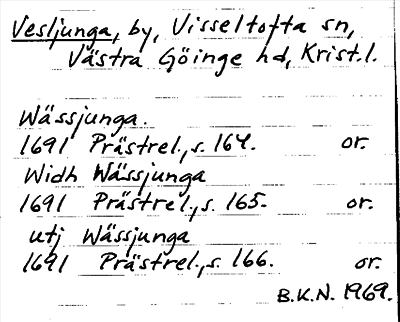 Vesljunga, by, Visseltofta sn,
Västra Göinge hd, Krist.l.
Wässjunga.
1691 Prästrel., s. 164. or.
Widh Wässjunga
1691 Prästrel., s. 165. or.
utj Wässjunga
1691 Prästrel., s. 166. or.
B.K.N. 1969.